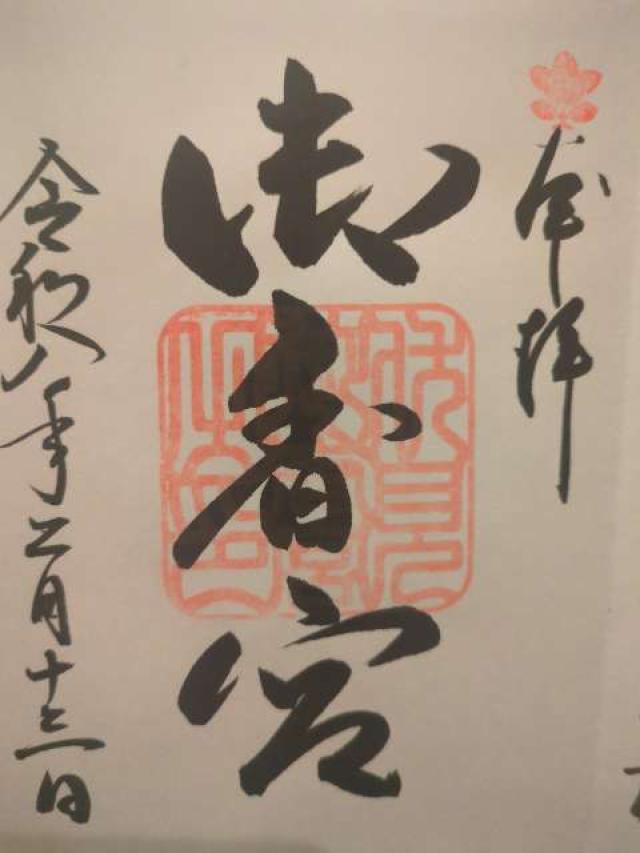 奉拝
御香宮
令和八年二月十三日